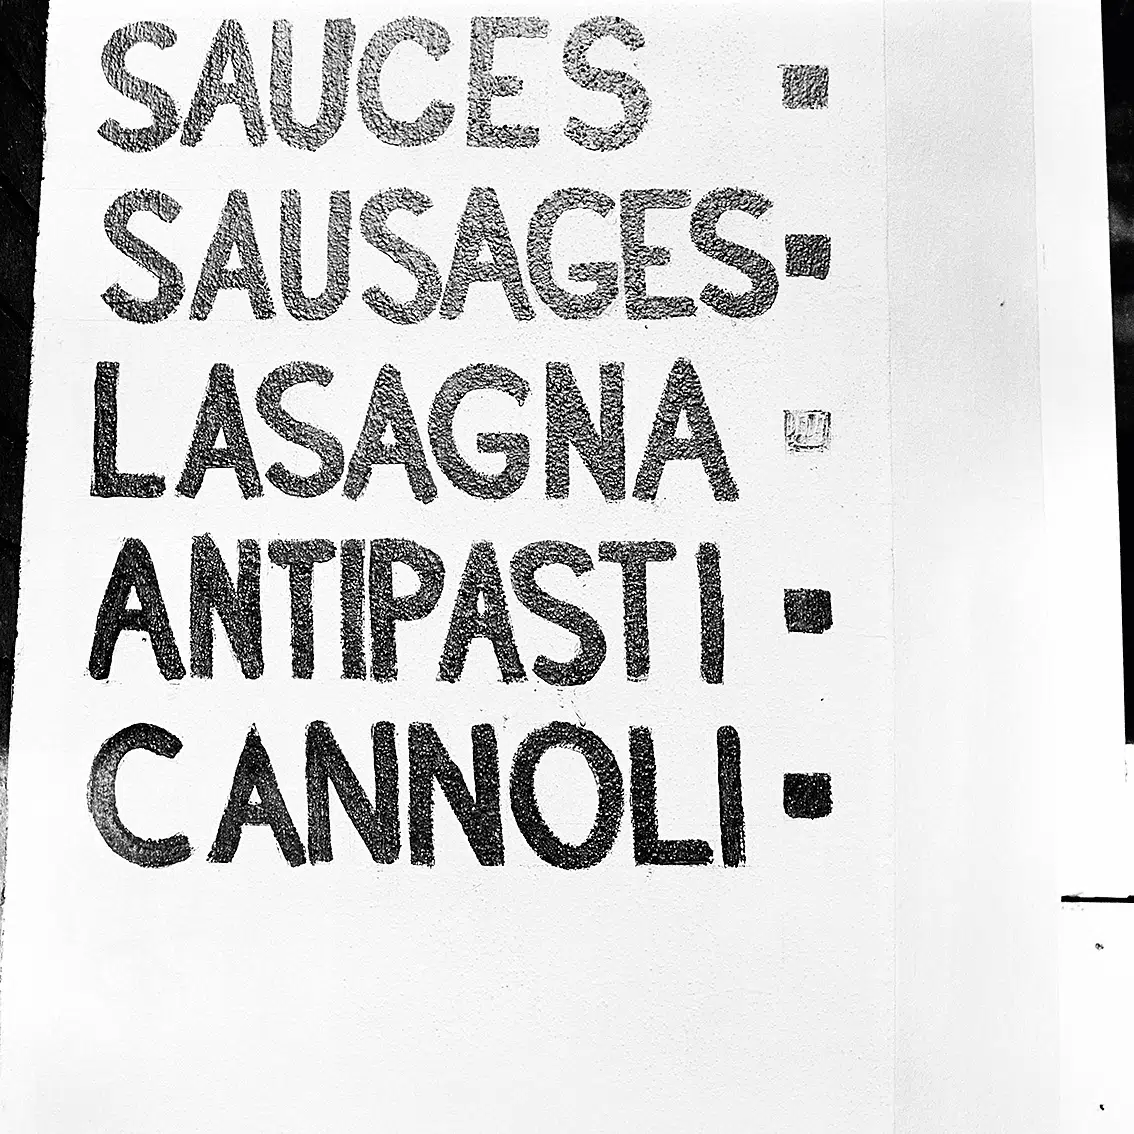 SAUCES
SAUSAGES
LASAGNA
ANTIPASTI
CANNOLI